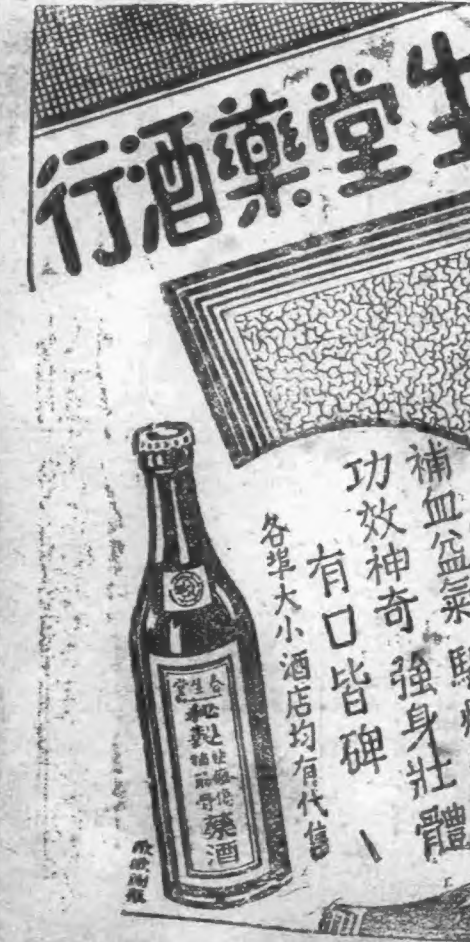 生堂藥酒行
補血益氣
功效神奇 強身壯體
有口皆碑
各埠大小酒店均有代售
合生堂
藥酒